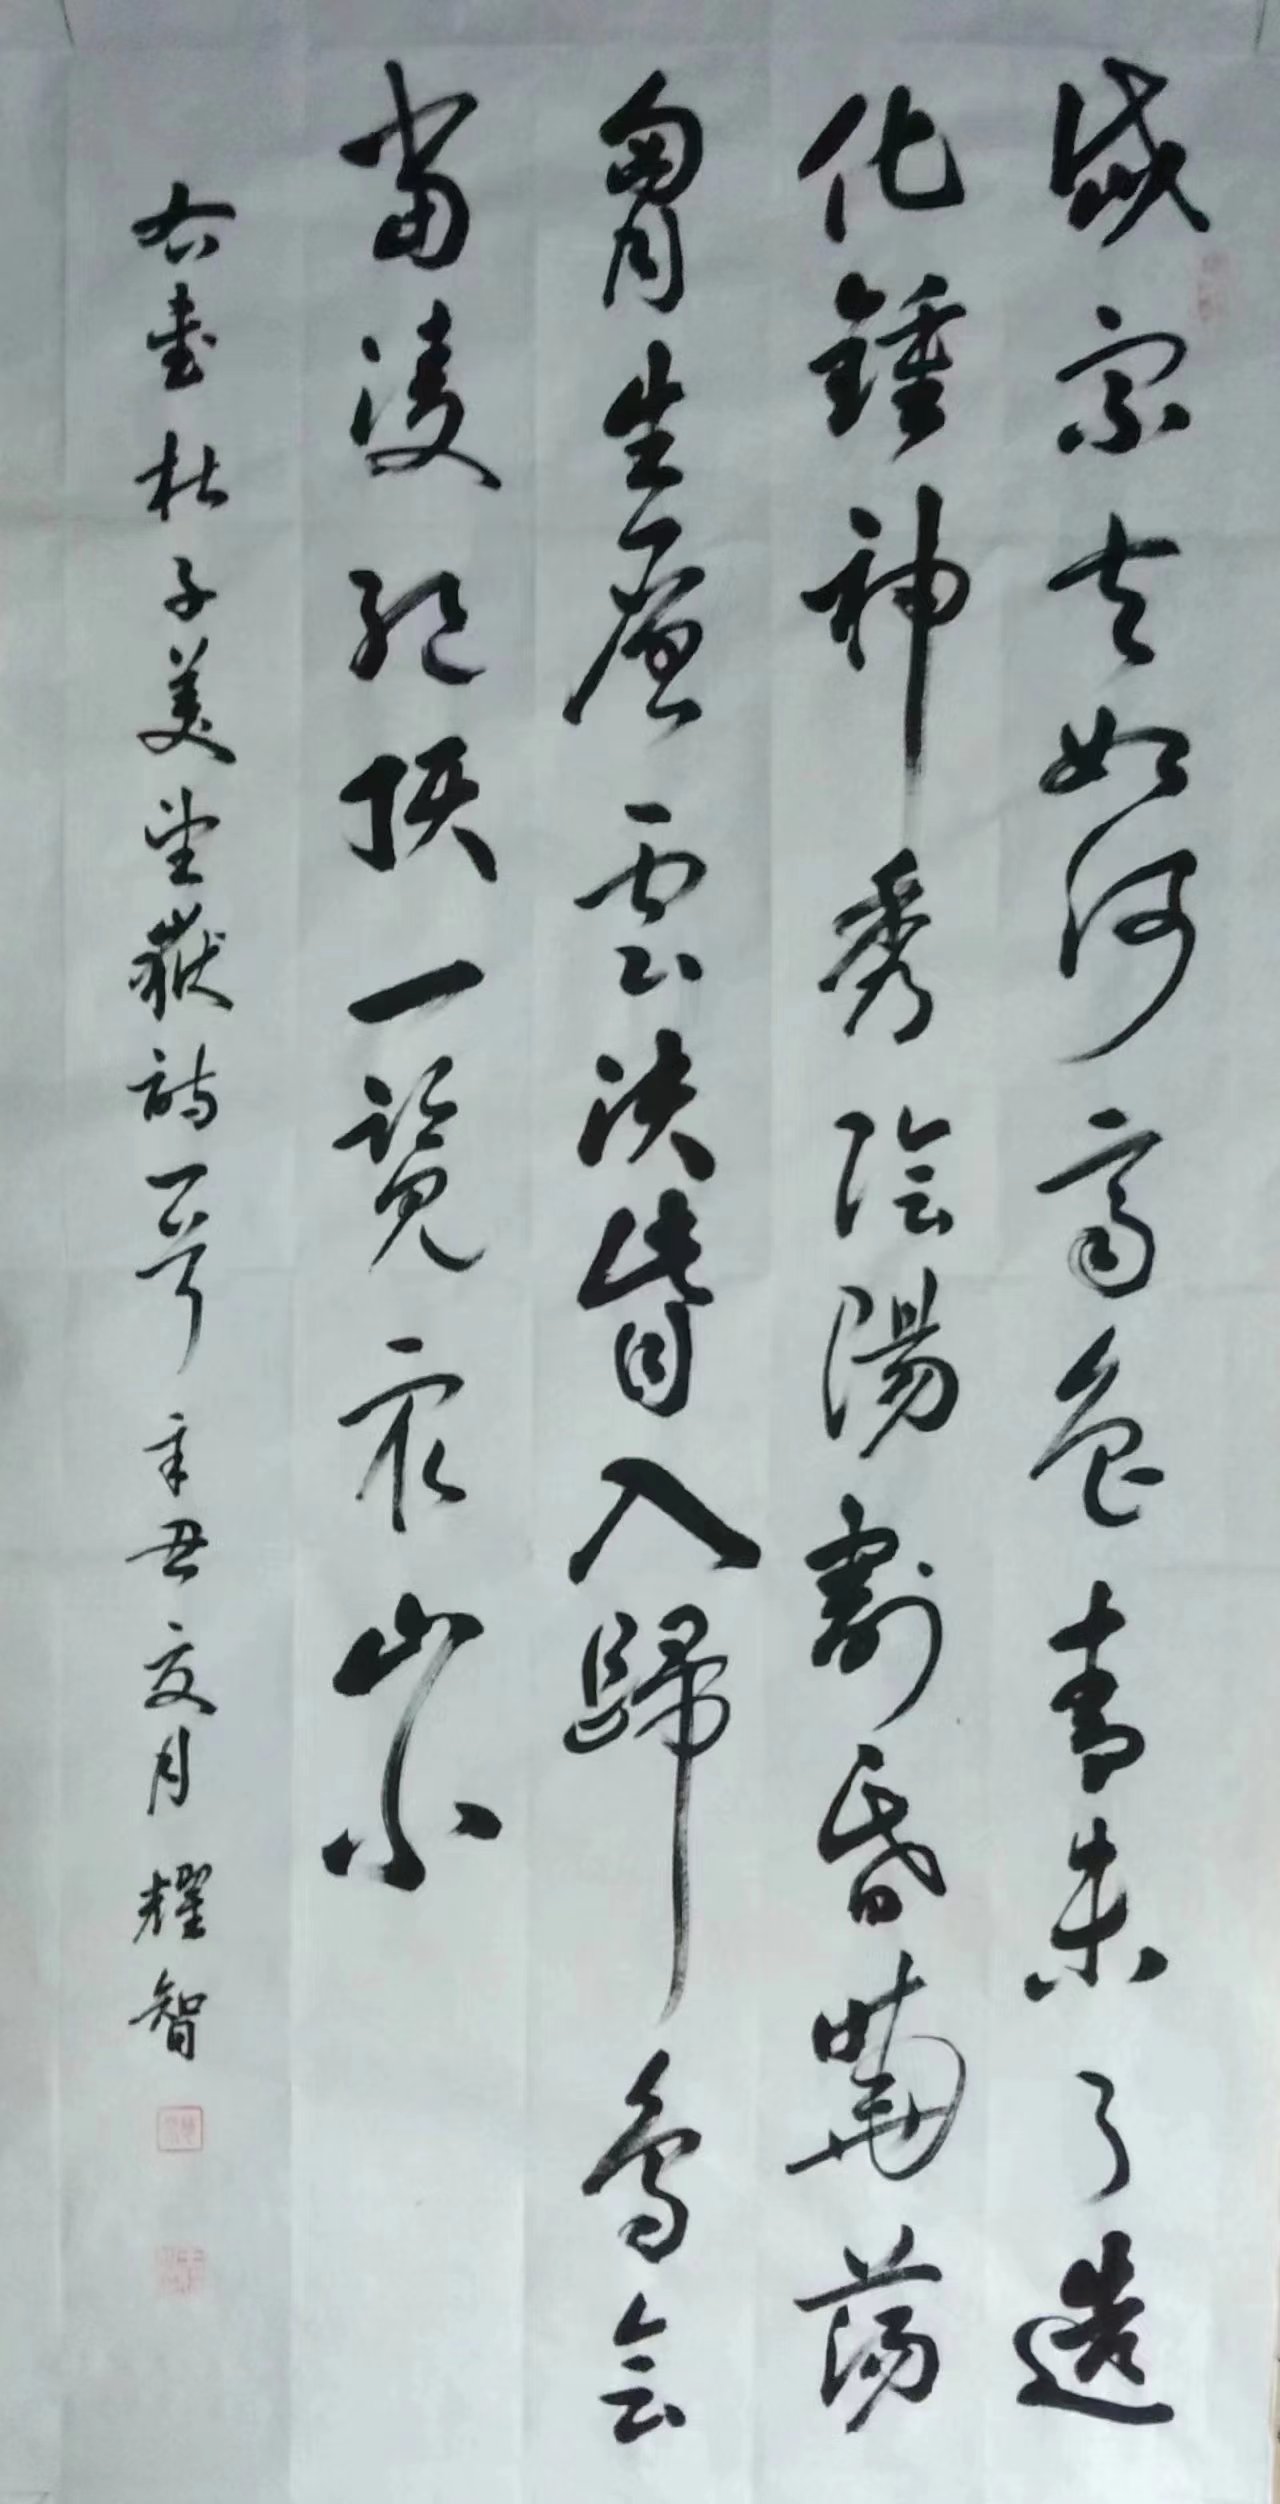 岱宗夫如何齊魯青未了造
化鍾神秀陰陽割昏曉蕩
胷生層雲決眥入歸鳥会
當凌絕頂一覽衆山小
右書杜子美望嶽詩一首 辛丑夏月 耀智